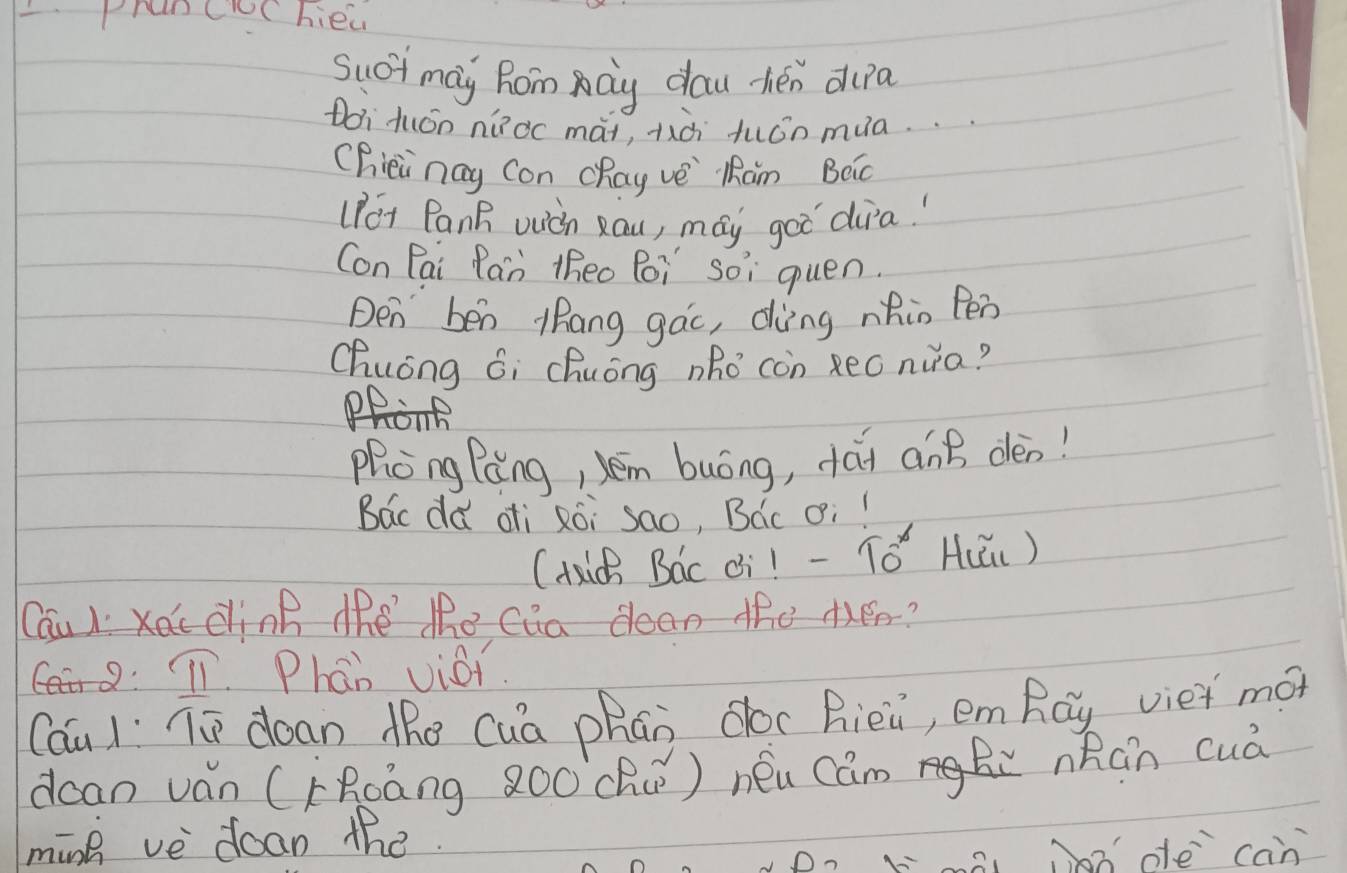 Phần đọc hiểu
Suốt mấy hôm rày đau tiễn đưa
Đời tuôn nước mắt, trời tuôn mưa....
Chiều nay con chạy về thăm Bác
Ướt lạnh vườn rau, mấy gốc dừa!
Con lại lần theo lối sỏi quen.
Đến bên thang gác, đứng nhìn lên
Chuông ôi chuông nhỏ còn reo nữa?
phòng lặng, rèm buông, tắt ánh đèn!
Bác đã đi rồi sao, Bác ơi!
(trích Bác ơi! - Tố Hữu)
Câu 1: Xác định thể thơ của đoạn thơ trên?
Câu 2: II. Phần viết.
Câu 1: Từ đoạn thơ của phần đọc hiểu, em hãy viết một
đoạn văn (khoảng 200 chữ) nêu cảm nghĩ nhận của
mình về đoạn thơ.
đề cần